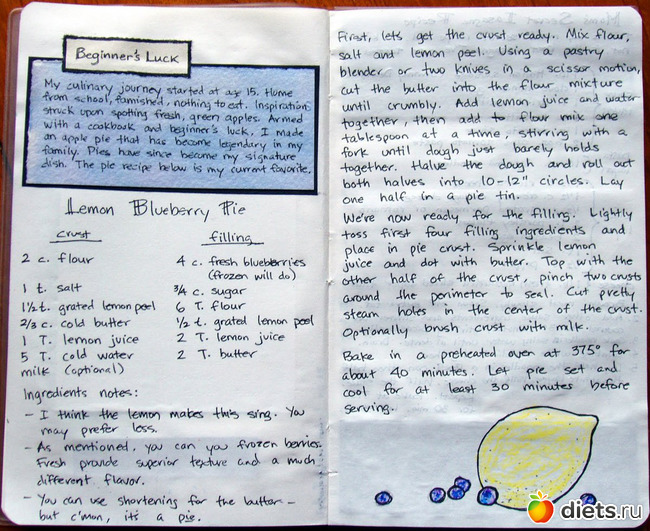 Beginner's Luck
My culinary journey started at age 15. Home
from school, famished, nothing to eat. Inspiration
struck upon spotting fresh, green apples. Armed
with a cookbook and beginner's luck, I made
an apple pie that has become legendary in my
family. Pies have since become my signature
dish. The pie recipe below is my current favorite.
Lemon Blueberry Pie
crust
2 c. flour
1 t. salt
1½ t. grated lemon peel
2/3 c. cold butter
1 T. lemon juice
5 T. cold water
milk (optional)
filling
4 c. fresh blueberries
(frozen will do)
¾ c. sugar
6 T. flour
½ t. grated lemon peel
2 T. lemon juice
2 T. butter
Ingredients notes:
- I think the lemon makes this sing. You
may prefer less.
- As mentioned, you can you frozen berries.
Fresh provide superior texture and a much
different flavor.
- You can use shortening for the butter -
but c'mon, it's a pie.
First, lets get the crust ready. Mix flour,
salt and lemon peel. Using a pastry
blender or two knives in a scissor motion,
cut the butter into the flour mixture
until crumbly. Add lemon juice and water
together, then add to flour mix one
tablespoon at a time, stirring with a
fork until dough just barely holds
together. Halve the dough and roll out
both halves into 10-12" circles. Lay
one half in a pie tin.
We're now ready for the filling. Lightly
toss first four filling ingredients and
place in pie crust. Sprinkle lemon
juice and dot with butter. Top with the
other half of the crust, pinch two crusts
around the perimeter to seal. Cut pretty
steam holes in the center of the crust.
Optionally brush crust with milk.
Bake in a preheated oven at 375° for
about 40 minutes. Let pie set and
cool for at least 30 minutes before
serving.
diets.ru